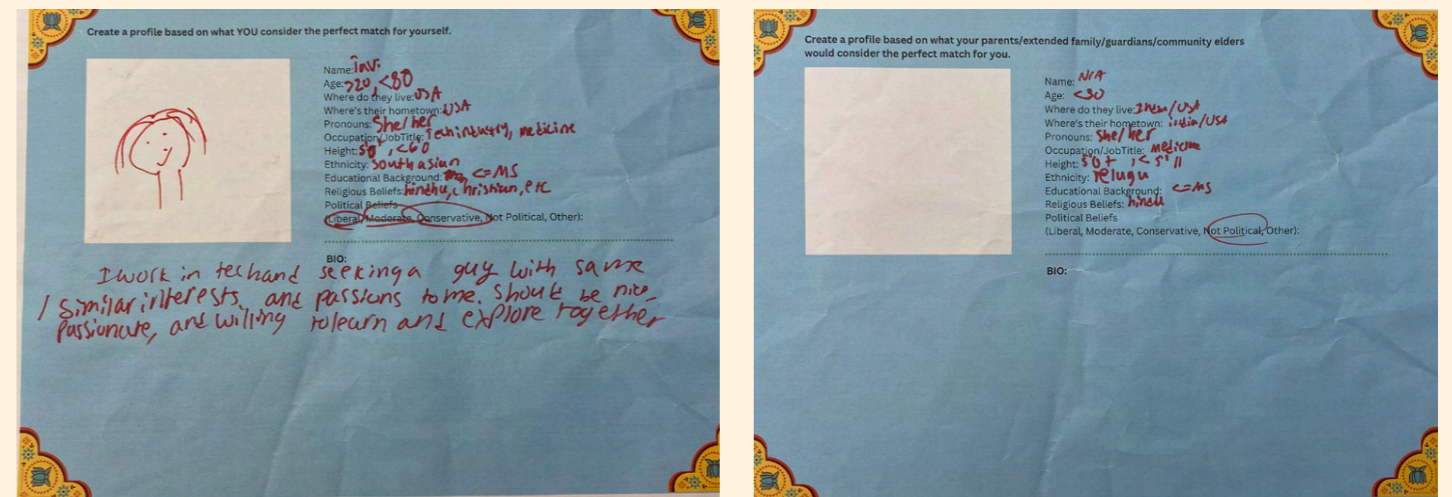 Create a profile based on what YOU consider the perfect match for yourself.
Name: inv.
Age: >20, <80
Where do they live: USA
Where's their hometown: USA
Pronouns: She/her
Occupation/JobTitle: Tech industry, medicine
Height: 5'0", <60
Ethnicity: South asian
Educational Background: <=MS
Religious Beliefs: hindhu, christian, etc
Political Beliefs
(Liberal, Moderate, Conservative, Not Political, Other):
BIO:
I work in tech and seeking a guy with same
/ similar interests and passions to me. Should be nice,
passionate, and willing to learn and explore together
Create a profile based on what your parents/extended family/guardians/community elders
would consider the perfect match for you.
Name: N/A
Age: <30
Where do they live: India/USA
Where's their hometown: india/USA
Pronouns: She/her
Occupation/JobTitle: Medicine
Height: 5'0+, <5'11
Ethnicity: Telugu
Educational Background: <=MS
Religious Beliefs: hindu
Political Beliefs
(Liberal, Moderate, Conservative, Not Political, Other):
BIO: